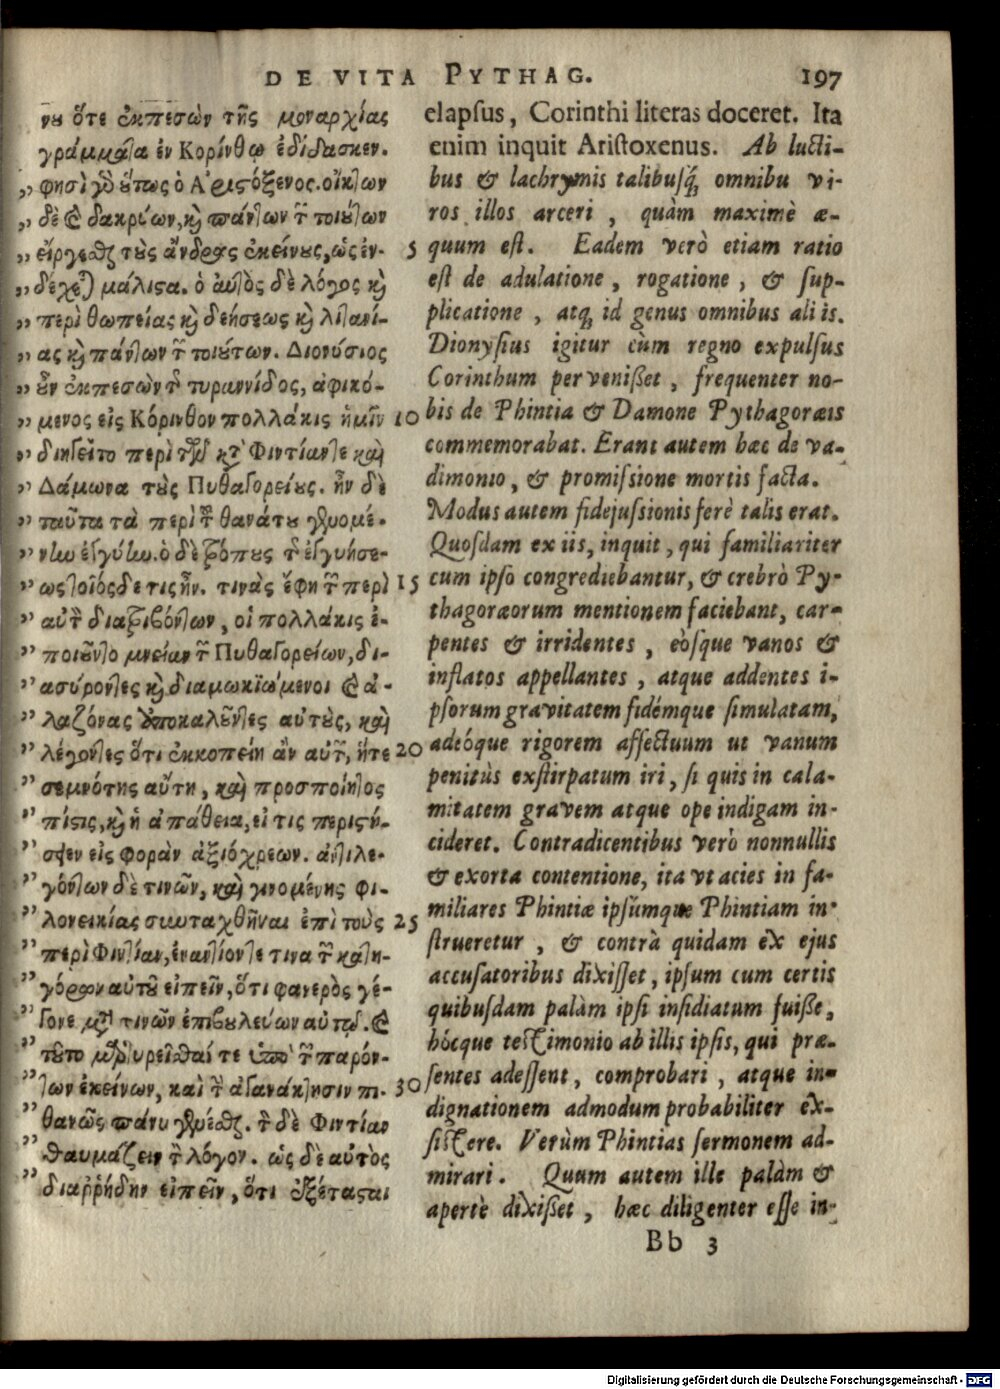 DE VITA PYTHAG. 197
νου ὅτε ἐκπεσὼν τῆς μοναρχίας
γράμματα ἐν Κορίνθῳ ἐδίδασκεν.
„ φησὶ γὸ οὕπως ὁ Ἀριστόξενος. οἴκτων
„ δὲ καὶ δακρύων, καὶ πάντων τῶν τοιούτων
„ εἴργεσθαι τοὺς ἄνδρας ἐκείνους, ὡς ἐν-
„ δέχεται μάλιστα. ὁ αὐτὸς δὲ λόγος καὶ
„ περὶ θωπείας καὶ δεήσεως καὶ λιτανεί-
„ ας καὶ πάντων τῶν τοιούτων. Διονύσιος
„ οὖν ἐκπεσὼν τῆς τυραννίδος, ἀφικό-
„ μενος εἰς Κόρινθον πολλάκις ἡμῖν
„ διηγεῖτο περὶ τῶν κατὰ Φιντίαν τε καὶ
„ Δάμωνα τοὺς Πυθαγορείους. ἦν δὲ
„ ταῦτα τὰ περὶ τῆς θανάτου γενομέ-
„ νην ἐγγύην. ὁ δὲ τρόπος τῆς ἐγγυήσε-
„ ως τοιόσδε τις ἦν. τινὰς ἔφη τῶν περὶ
„ αὐτὸν διατριβόντων, οἳ πολλάκις ἐ-
„ ποιοῦντο μνείαν τῶν Πυθαγορείων, δι-
„ ασύροντες καὶ διαμωκώμενοι καὶ ἀ-
„ λαζόνας ἀποκαλοῦντες αὐτοὺς, καὶ
„ λέγοντες ὅτι ἐκκοπείη ἂν αὐτῶν, ἥ τε
„ σεμνότης αὕτη, καὶ προσποίητος
„ πίστις, καὶ ἡ ἀπάθεια, εἴ τις περιστή-
„ σειεν εἰς φορὰν ἀξιόχρεων. ἀντιλε-
„ γόντων δὲ τινῶν, καὶ γινομένης φι-
„ λονεικίας συνταχθῆναι ἐπὶ τοὺς
„ περὶ Φιντίαν, ἐναντίον τε τινα τῶν κατη-
„ γόρων αὐτοῦ εἰπεῖν, ὅτι φανερὸς γέ-
„ γονε μετὰ τινῶν ἐπιβουλεύων αὐτῷ. καὶ
„ τοῦτο μαρτυρεῖσθαί τε ὑπὸ τῶν παρόν-
„ των ἐκείνων, καὶ τὴν ἀγανάκτησιν πι-
„ θανῶς πάνυ γενέσθαι. τὸν δὲ Φιντίαν
„ θαυμάζειν τὸν λόγον. ὡς δὲ αὐτὸς
„ διαῤῥήδην εἰπεῖν, ὅτι ἐξέτασται
elapsus, Corinthi literas doceret. Ita
enim inquit Aristoxenus. Ab lucti-
bus & lachrymis talibusq; omnibu vi-
ros illos arceri, quàm maximè æ-
5 quum est. Eadem verò etiam ratio
est de adulatione, rogatione, & sup-
plicatione, atq; id genus omnibus aliis.
Dionysius igitur cùm regno expulsus
Corinthum pervenißet, frequenter no-
10 bis de Phintia & Damone Pythagoræis
commemorabat. Erant autem hæc de va-
dimonio, & promissione mortis facta.
Modus autem fidejussionis ferè talis erat.
Quosdam ex iis, inquit, qui familiariter
15 cum ipso congrediebantur, & crebrò Py-
thagoræorum mentionem faciebant, car-
pentes & irridentes, eòsque vanos &
inflatos appellantes, atque addentes i-
psorum gravitatem fidémque simulatam,
20 adeóque rigorem affectuum ut vanum
penitùs exstirpatum iri, si quis in cala-
mitatem gravem atque ope indigam in-
cideret. Contradicentibus verò nonnullis
& exorta contentione, ita vt acies in fa-
25 miliares Phintiæ ipsúmque Phintiam in-
strueretur, & contrà quidam ex ejus
accusatoribus dixisset, ipsum cum certis
quibusdam palàm ipsi insidiatum fuiße,
hócque testimonio ab illis ipsis, qui præ-
30 sentes adessent, comprobari, atque in-
dignationem admodum probabiliter ex-
sistere. Verùm Phintias sermonem ad-
mirari. Quum autem ille palàm &
apertè dixißet, hæc diligenter esse in-
Bb 3
Digitalisierung gefördert durch die Deutsche Forschungsgemeinschaft - DFG